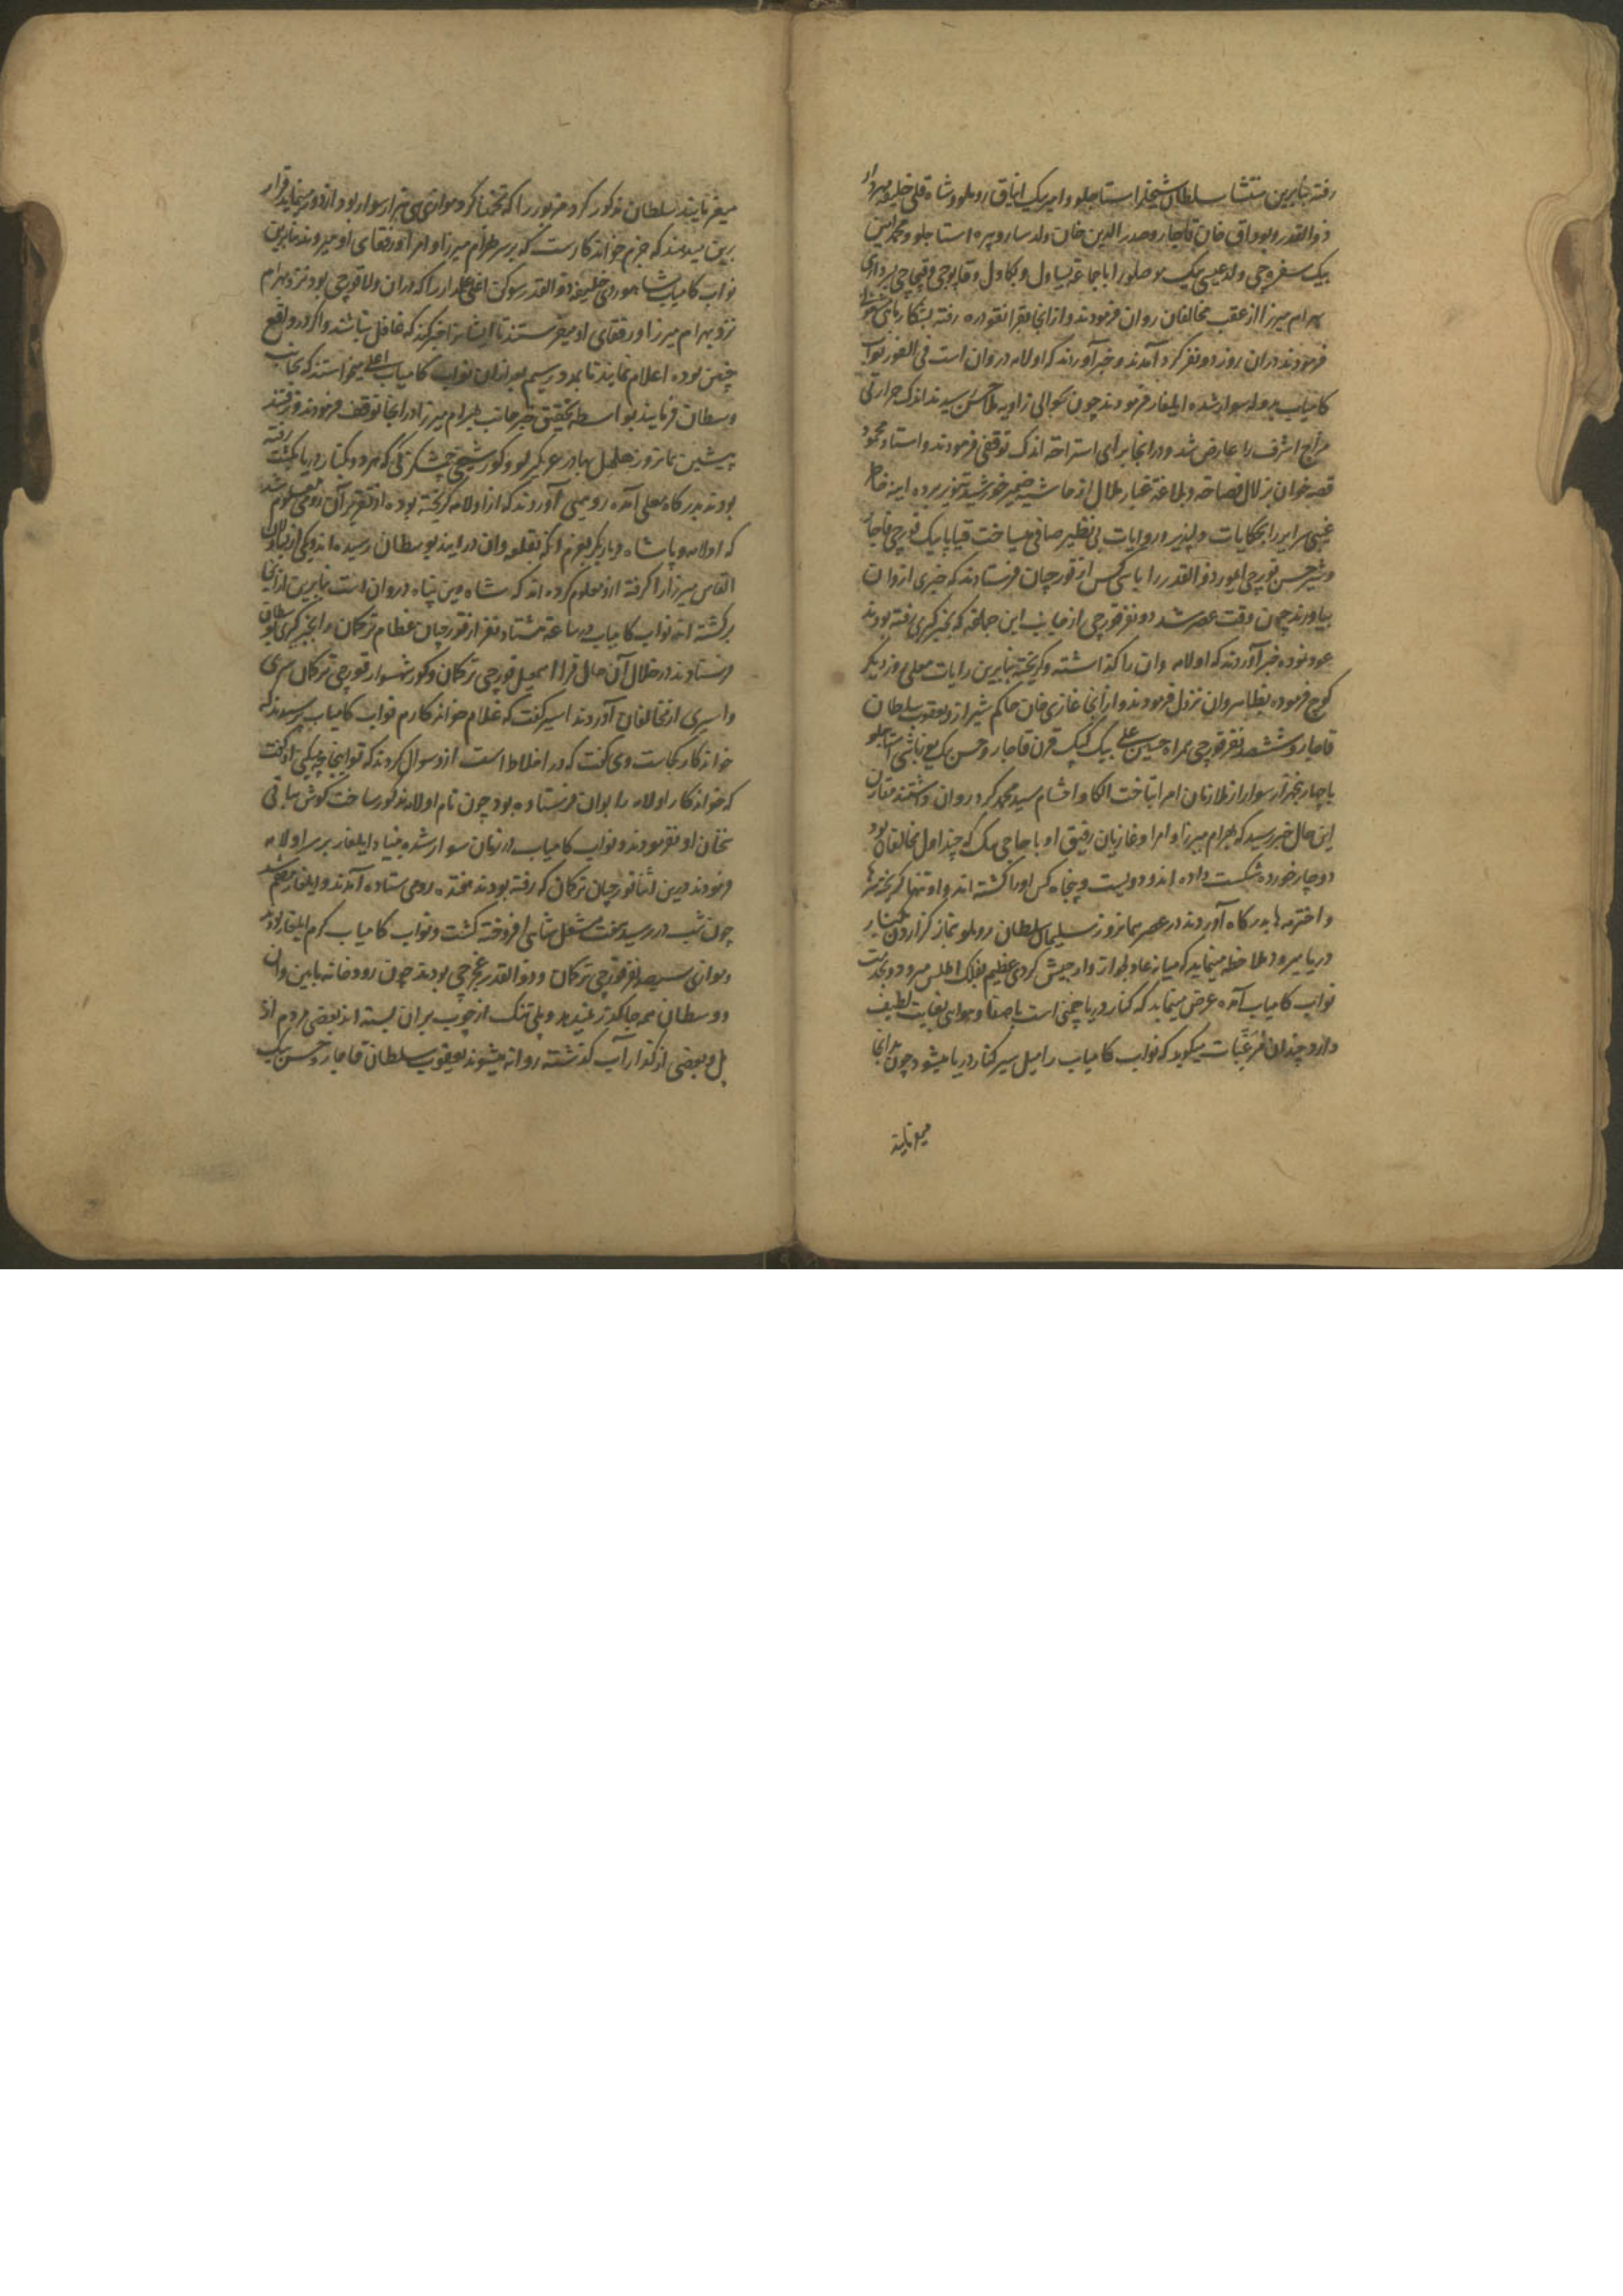 رفته بنابرین منتشا سلطان شیخلر استاجلو و امیر بیک ایناق روملو و شاه قلی خلیفه مهردار
ذوالقدر و بوداق خان قاجار و صدرالدین خان ولد ساروپیره استاجلو و محمد امین
بیک سفره‌چی ولد عیسی بیک را با جماعه یساول و بکاول و قاپوچی و قیچاجی بسرداری
بهرام میرزا از عقب مخالفان روان فرمودند و از انجا بقرانقودره رفته بشکار ماهی
فرمودند در ان روز دو نفر کرد آمدند و خبر آوردند که اولامه در وان است فی الفور نواب
کامیاب بدولت سوار شده ایلغار فرمودند چون بحوالی زاویه رسیدند اندک حرارتی
مزاج اشرف را عارض شد و در انجا برای استراحت اندک توقفی فرمودند و استاد محمود
قصه خوان بزلال فصاحة و بلاغة غبار ملال از حاشیه ضمیر خورشید تنویر برده اینه خاطر
غیبی سرایر را بحکایات دلپذیر و روایات بی نظیر صافی میساخت قیاپا بیک قورچی قاجار
و شیر حسن قورچی ذوالقدر را با سی کس از قورچیان فرستادند که خبری از وان
بیاورند چون وقت عصر شد دو نفر قورچی از جانب این جماعة که بخبر گیری رفته بودند
عود نموده خبر آوردند که اولامه وان را گذاشته و گریخته بنابرین رایات معلی روز دیگر
کوچ فرموده بظاهر وان نزول فرمودند و از انجا غازی خان حاکم شیراز و یعقوب سلطان
قاجار و ششصد نفر قورچی همراه حسین علی بیک کپک قرن قاجار و حسن بک یوزباشی استاجلو
با چهار پنجهزار سوار از ملازمان امرا بتاخت الکا و احشام سید محمد کرد روان داشتند مقارن
این حال خبر رسید که بهرام میرزا و امرا و غازیان رفیق او با حاجی بک که چنداول مخالفان بود
دوچار خورده شکست داده اند و دویست و پنجاه کس او را کشته اند و او تنها گریخته سرها
و اخترمه ها بدرگاه آوردند در عصر همانروز سلیمان سلطان روملو بنماز گزاردن بکنار
دریا میرود ملاحظه مینماید که میانه عادلجواز و ارجیش گردی عظیم بفلک اطلس میرود و بخدمت
نواب کامیاب آمده عرض مینماید که کنار دریا چمنی است باصفا و هوایی بغایت لطیف
دارد چندان مرغبات میگوید که نواب کامیاب را میل سیر کنار دریا میشود چون بدانجا
میفرمایند
میفرمایند سلطان مذکور گرد مزبور را که تخمینا گرد موازی سی هزار سوار بود از دور مینماید قرار
برین میدهند که جزم خواندکارست که بر سر بهرام میرزا و امرا و رفقای او میروند بنابرین
نواب کامیاب شاهوردی خلیفه ذوالقدر سوکن اغلی علمدار را که دران ولا قورچی بود نزد بهرام
نزد بهرام میرزا و رفقای او میفرستند تا ایشانرا خبر کند که غافل نباشند و اگر در واقع
چنین بوده اعلام نمایند تا بمدد رسیم بعد از ان نواب کامیاب اعلی میخواستند که بجانب
وسطان فرمایند بواسطه تحقیق خبر جانب بهرام میرزا در انجا توقف فرمودند و رفتند
پیشین همانروز بهادر عربگیرلو و کور شیخی چشکزکی که بمرد و کنار دریا بگشت رفته
بودند بدرگاه معلی آمده رومیی آوردند که از اولامه گریخته بوده از تقریر آن رومی معلوم شد
که اولامه و پاشاه دیاربکر بعزم آنکه بقلعه وان درایند بوسطان رسیده اند و یکی از ملازمان
القاس میرزا را گرفته ازو معلوم کرده اند که شاه دین پناه در وان است بنابرین از انجا
برگشته اند نواب کامیاب در ساعة هشتاد نفر از قورچیان عظام ترکمان را بخبر گیری بوسطان
فرستادند در خلال آن حال قرا اسمعیل قورچی ترکمان و کور شهسوار قورچی ترکمان سری
و اسیری از مخالفان آوردند اسیر گفت که غلام خواندکارم نواب کامیاب پرسیدند که
خواندکار کجاست وی گفت که در اخلاط است ازو سوال کردند که تو اینجا چه میکنی او گفت
که خواندکار اولامه را بوان فرستاده بود چون نام اولامه مذکور ساخت گوش بباقی
سخنان او نفرمودند و نواب کامیاب در زمان سوار شده بنیاد ایلغار بر سر اولامه
فرمودند درین اثنا قورچیان ترکمان که رفته بودند هفده رومی ستاده آمدند و ایلغار مصمم شد
چون شب در رسید هفت مشعل شاهی افروخته گشت و نواب کامیاب گرم ایلغار بودند
و موازی سیصد نفر قورچی ترکمان و ذوالقدر غجرچی بودند چون رودخانه مابین وان
و وسطان همه جا گذر نمیدهد و پلی تنگ از چوب بران بسته اند بعضی مردم از
پل و بعضی از گذار آب گذشته روانه میشوند یعقوب سلطان قاجار و حسن بیک